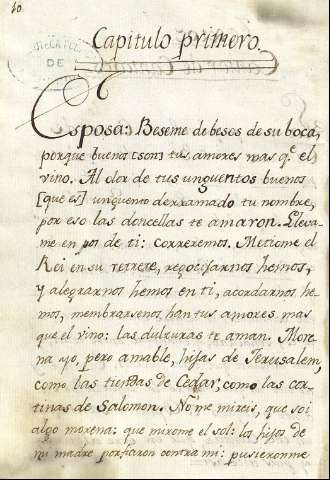 10
OTECA PU
DE
Capitulo primero.
Esposa: Beseme de besos de su boca,
porque buenos [son] tus amores mas q.e el
vino. Al olor de tus unguentos buenos
[que es] unguento derramado tu nombre,
por eso las doncellas te amaron. Lleva-
me en pos de ti: correremos. Metiome el
Rei en su retrete, regocijarnos hemos,
y alegrarnos hemos en ti, acordarnos he-
mos, membrarsenos han tus amores mas
que el vino: las dulzuras te aman. More-
na yo, pero amable, hijas de Jerusalem,
como las tiendas de Cedar, como las cor-
tinas de Salomon. No me mireis, que soi
algo morena: que mirome el sol: los hijos de
mi madre porfiaron contra mi: pusieronme